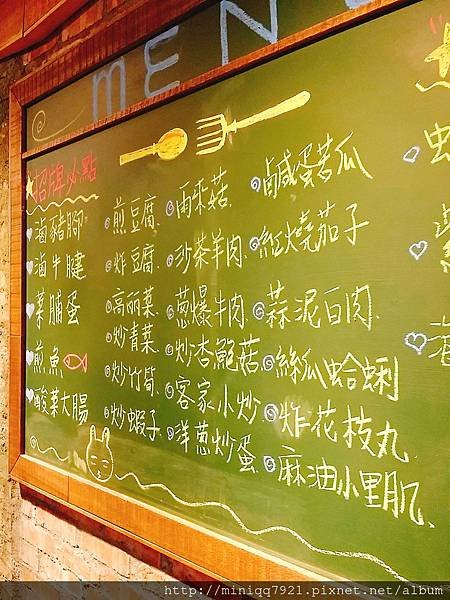 MENU
招牌必點
滷豬腳
滷牛腱
菜脯蛋
煎魚
酸菜大腸
煎豆腐
炸豆腐
高麗菜
炒青菜
炒竹筍
炒蝦子
雨來菇
沙茶羊肉
蔥爆牛肉
炒杏鮑菇
客家小炒
洋蔥炒蛋
鹹蛋苦瓜
紅燒茄子
蒜泥白肉
絲瓜蛤蜊
炸花枝丸
麻油小里肌
http://miniqq7921.pixnet.net/album